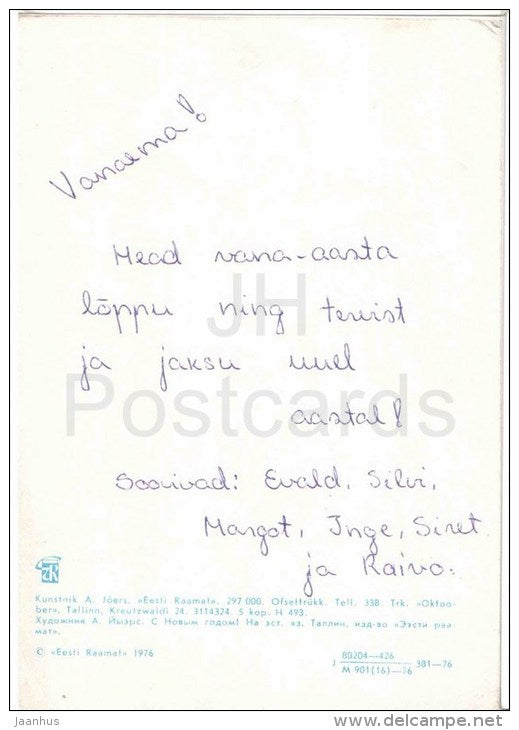 Vanaema!
Head vana-aasta
lõppu ning tervist
ja jaksu uuel
aastal!
Soovivad: Evald, Silvi,
Margot, Inge, Siret
ja Raivo.
JH
Postcards
Kunstnik A. Jõers. «Eesti Raamat». 297 000. Ofsettrükk. Tell. 338. Trk. «Oktoo-
ber», Tallinn, Kreutzwaldi 24. 3114324. 5 kop. H 493.
Художник А. Йыэрс. С Новым годом! На эст. яз. Таллин, изд-во «Ээсти раа
мат».
© «Eesti Raamat» 1976
J 80204—426 381—76
M 901(16)—76
jaanhus
www.delcampe.net